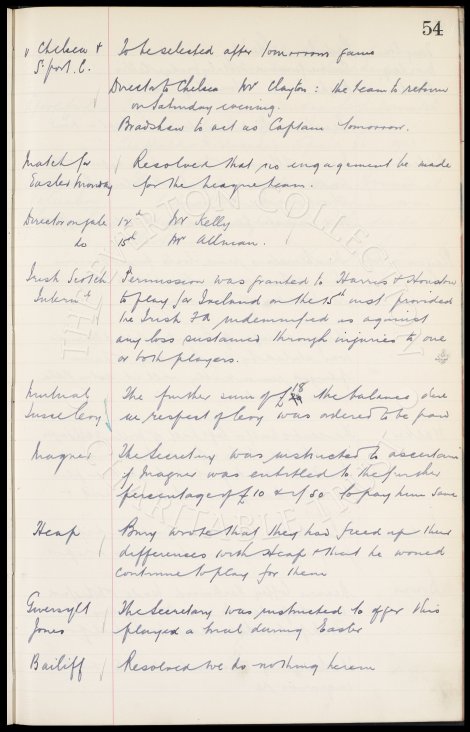 54
v Chelsea & To be selected after tomorrows game
S'port C.
Director to Chelsea Mr Clayton : the team to return
on Saturday evening.
Bradshaw to act as Captain tomorrow.
Match for Resolved that no engagement be made
Easter Monday for the league team.
Director on gate 12th Mr Kelly
do 15th Mr Allman.
Irish Scotch Permission was granted to Harris & Houston
Internl to play for Ireland on the 15th inst provided
the Irish FA indemnified us against
any loss sustained through injuries to one
or both players.
Mutual The further sum of £18 the balance due
Insce Levy in respect of levy was ordered to be paid
Magner The Secretary was instructed to ascertain
if Magner was entitled to the further
percentage of £10 & if so to pay him same
Heap Bury wrote that they had fixed up their
differences with Heap & that he would
continue to play for them
Gwersyllt The Secretary was instructed to offer this
Jones player a trial during Easter
Bailiff Resolved we do nothing herein
THE EVERTON COLLECTION
CHARITABLE TRUST